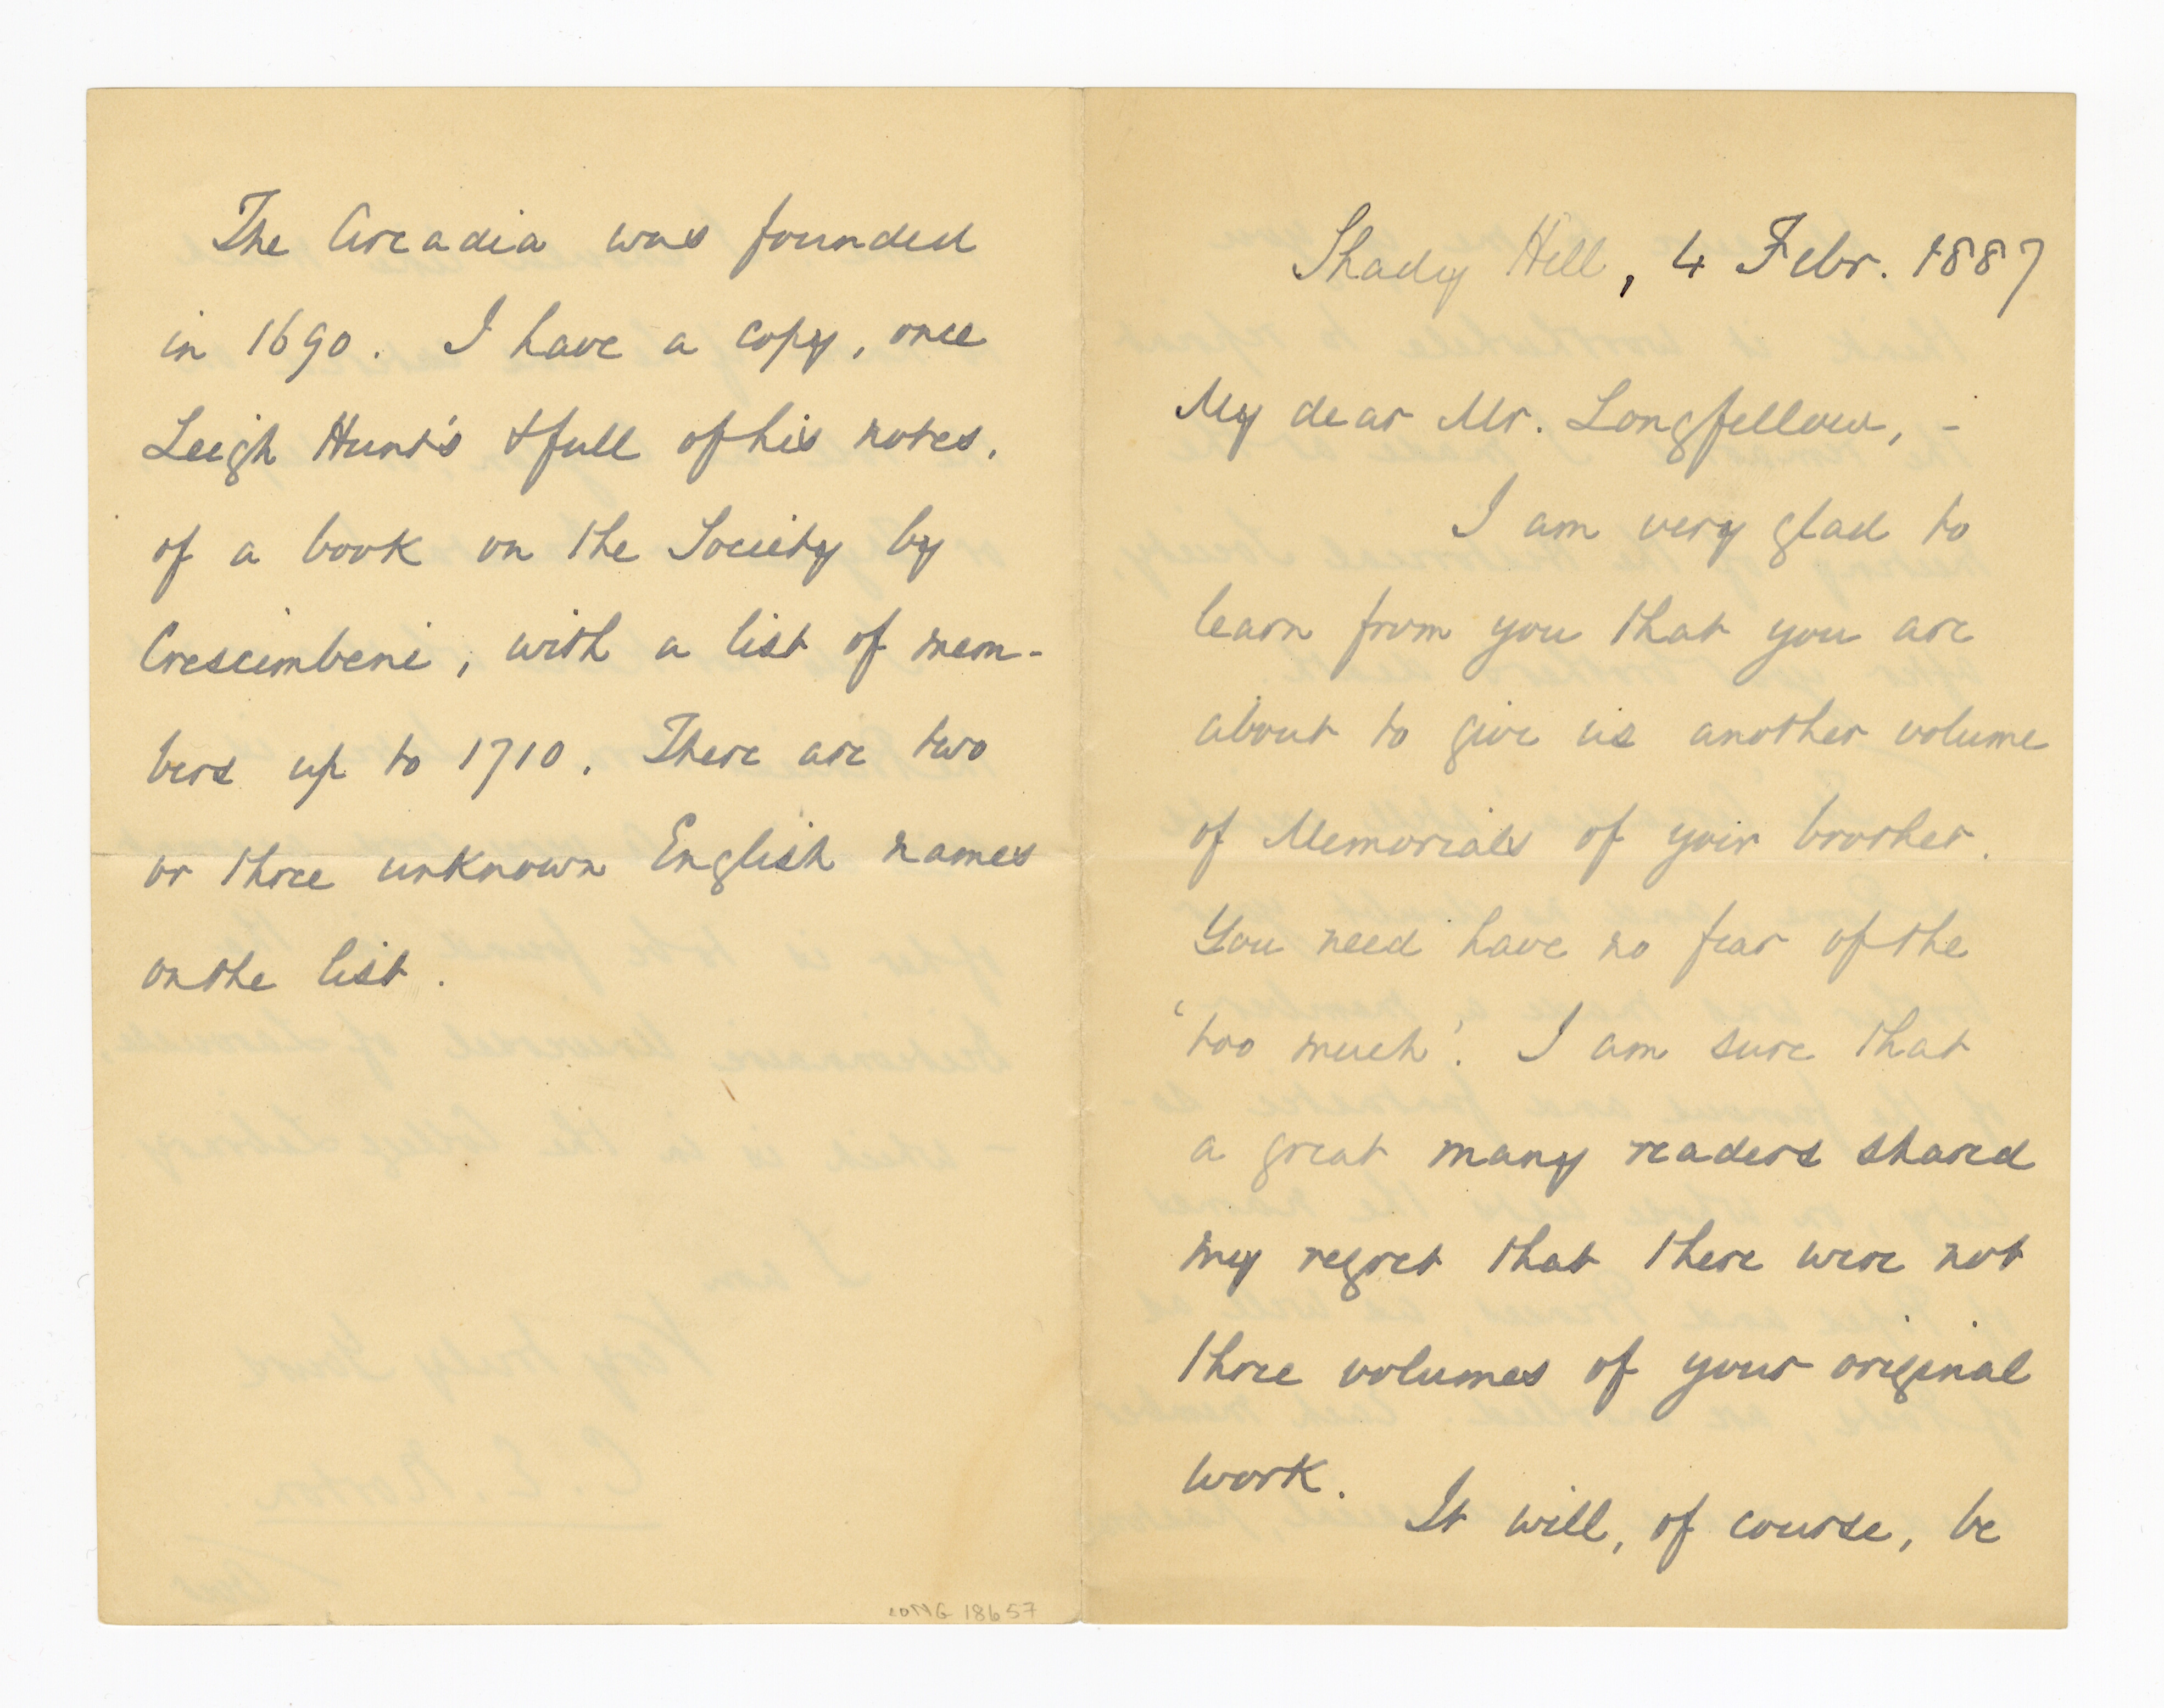 Shady Hill, 4 Febr. 1887
My dear Mr. Longfellow, -
I am very glad to
learn from you that you are
about to give us another volume
of Memorials of your brother.
You need have no fear of the
'too much'. I am sure that
a great many readers shared
my regret that there were not
three volumes of your original
work. It will, of course, be
The Arcadia was founded
in 1690. I have a copy, once
Leigh Hunt's & full of his notes,
of a book on the Society by
Crescimbeni, with a list of mem-
bers up to 1710. There are two
or three unknown English names
on the list.
LONG 18657